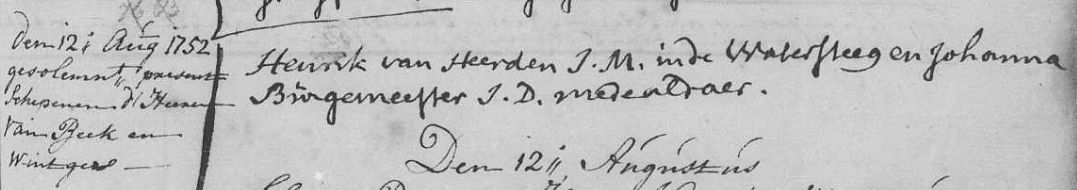 den 12: Aug 1752
gesolemnt, present
Schepenen d' Heeren
van Beek en
Wintgens
Henrik van Heerden J. M. in de Watersteeg en Johanna
Bürgemeester J. D. mede aldaer.
Den 12: Augustus